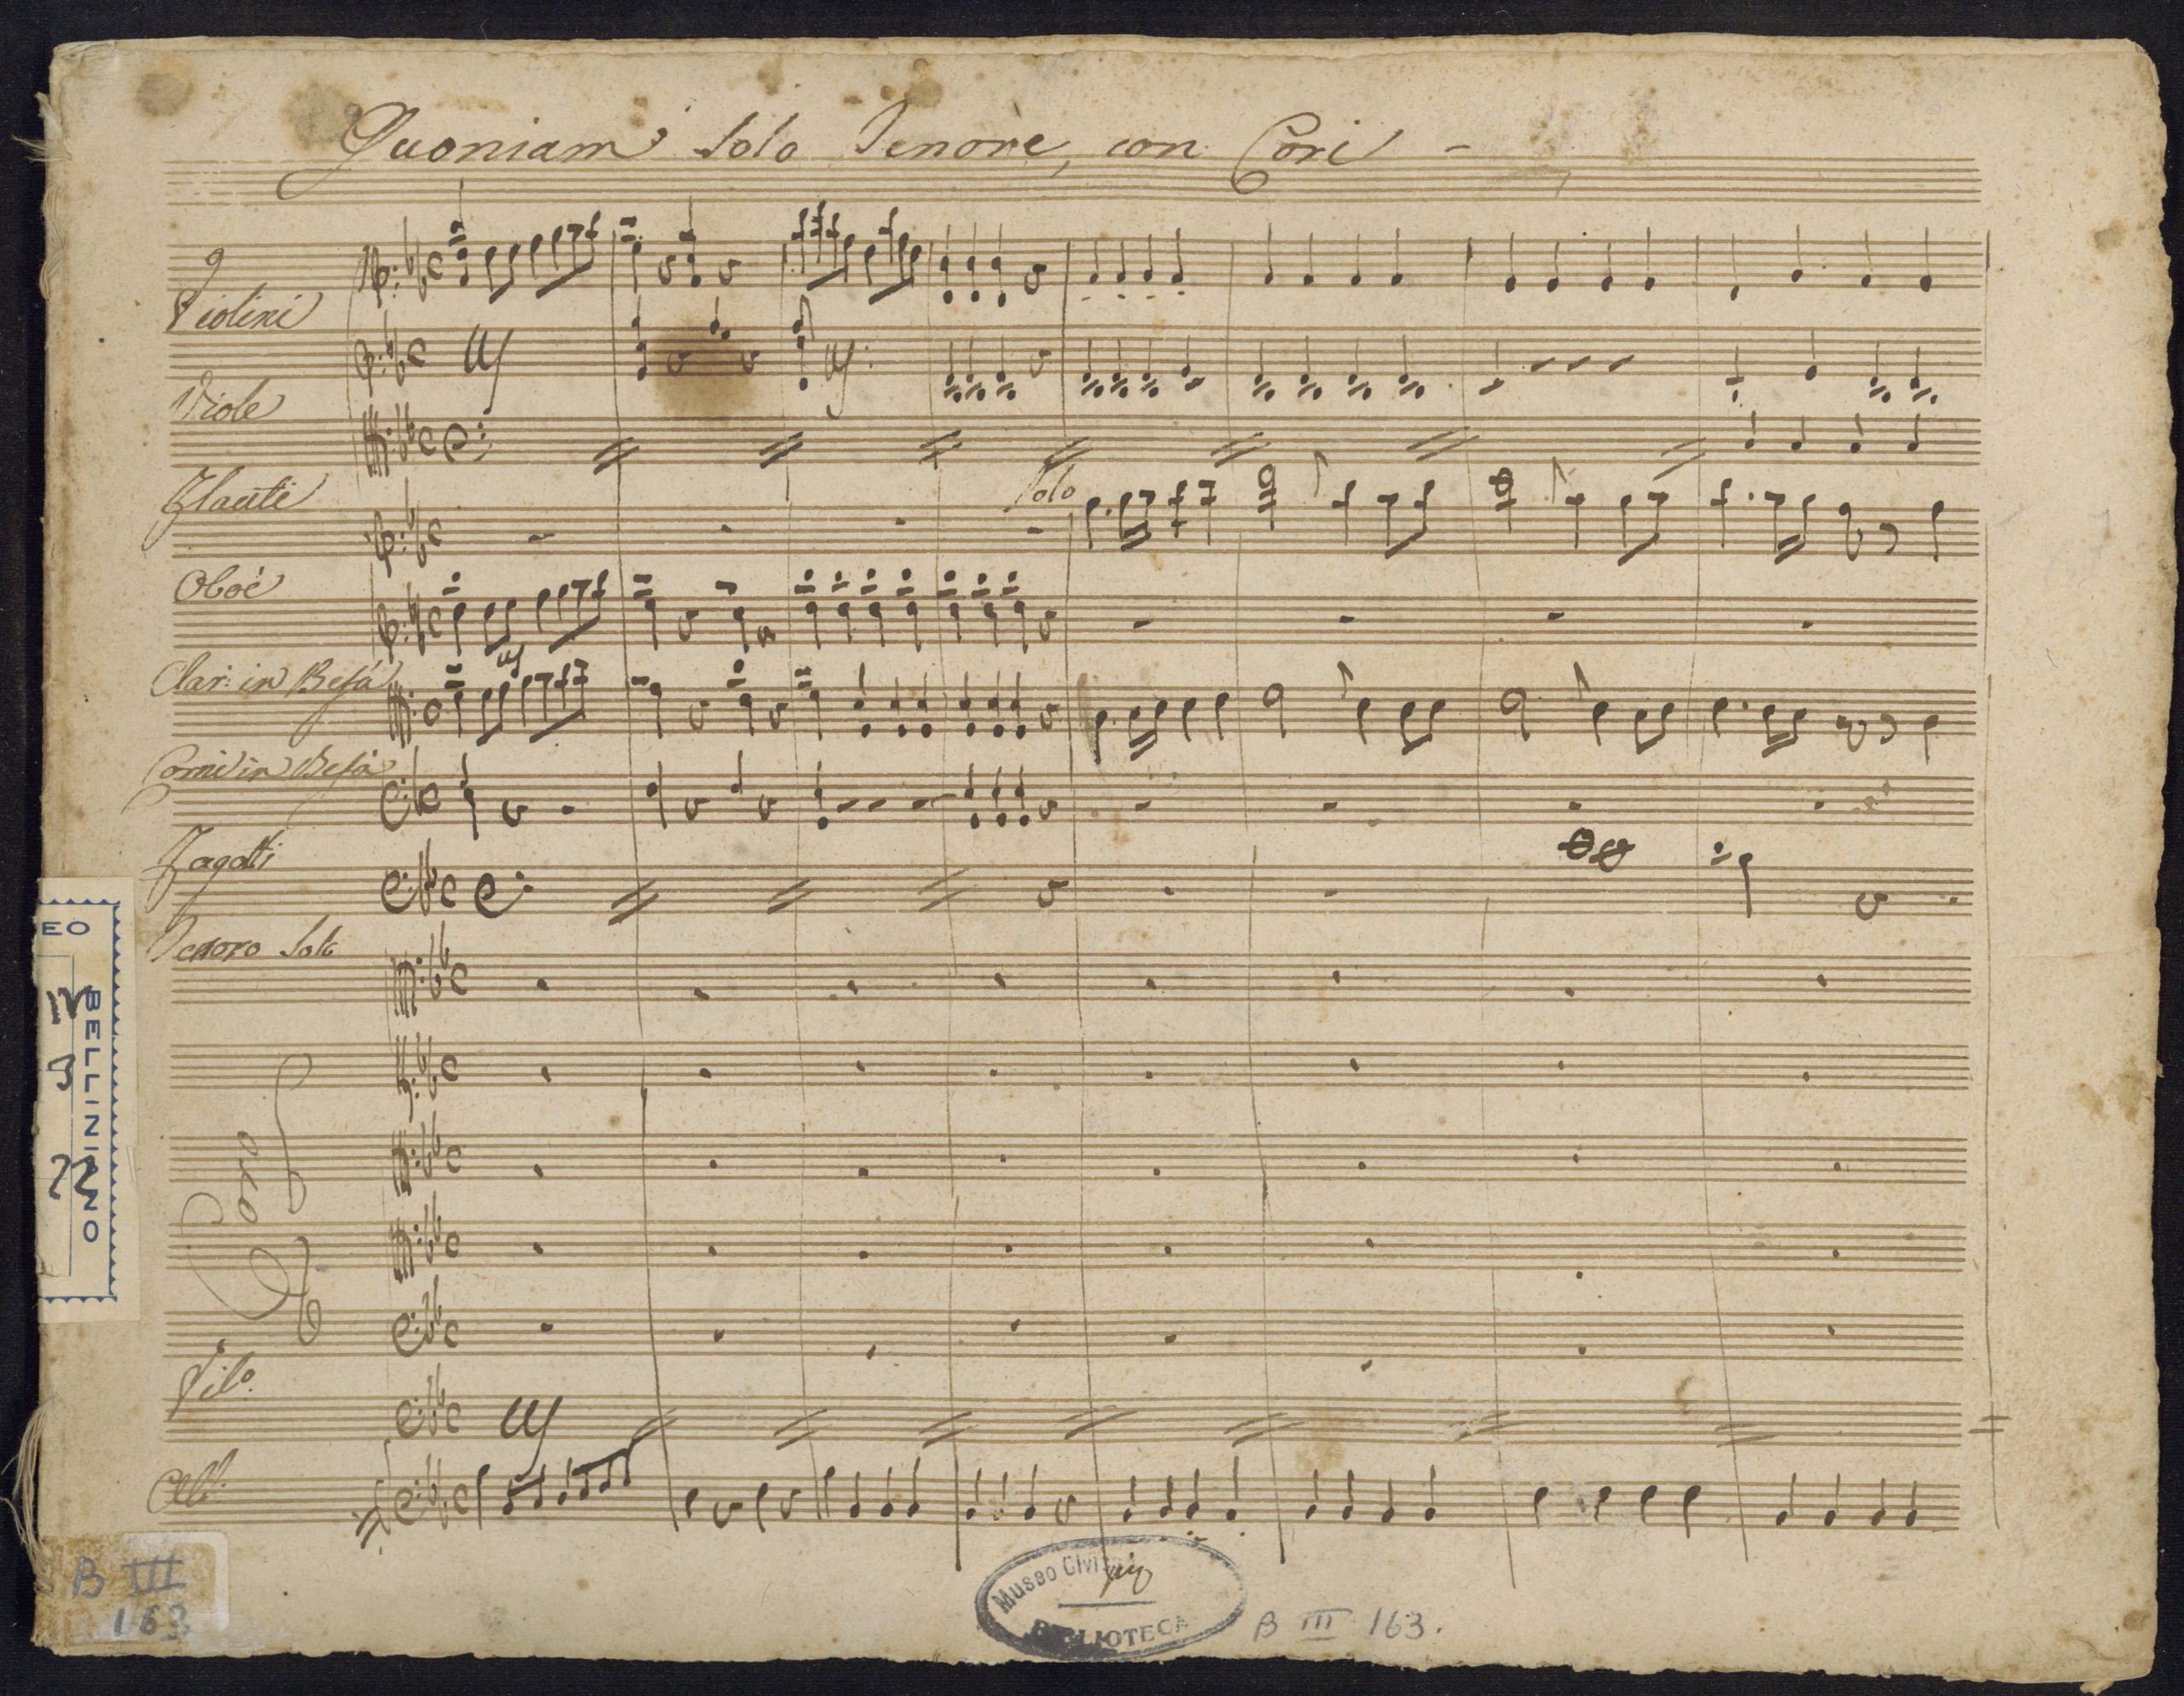 Quoniam Solo Tenore, con Cori
Violini
Viole
Flauti
Solo
Oboè
Clar: in Befà
Corni in Befà
Fagotti
Tenore Solo
Coro
Vilo.
All:
EO
BELLINIANO
IV
3
22
B III
163
Museo Civi
BIBLIOTECA
B III 163.